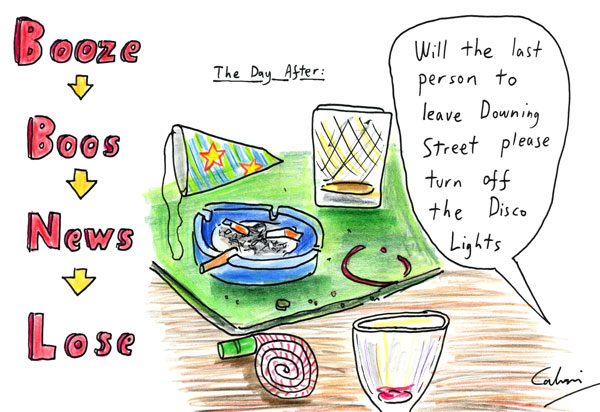 Booze
Boos
News
Lose
The Day After:
Will the last
person to
leave Downing
Street please
turn off
the Disco
Lights